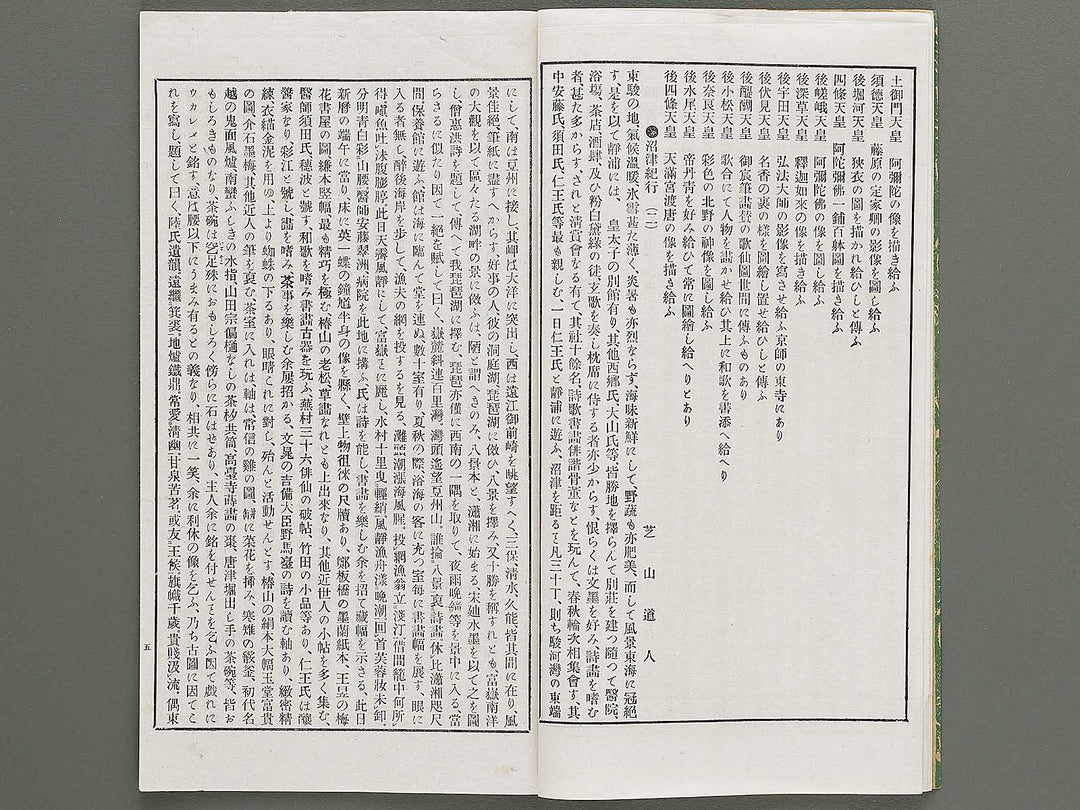 土御門天皇　阿彌陀の像を描き給ふ
須德天皇　藤原の定家卿の影像を圖し給ふ
後堀河天皇　狹衣の圖を描かれ給ひしと傳ふ
四條天皇　阿陀彌佛一鋪百躰圖を描き給ふ
後嵯峨天皇　阿彌陀佛の像を圖し給ふ
後深草天皇　釋迦如來の像を描き給ふ
後宇田天皇　弘法大師の影像を寫させ給ふ京師の東寺にあり
後伏見天皇　名香の裹の樣を圖繪し置せ給ひしと傳ふ
後醍醐天皇　御宸筆畫替の歌仙圖世間に傳ふものあり
後小松天皇　歌合にて人物を畵かせ給ひ其上に和歌を書添へ給へり
後奈良天皇　彩色の北野の神像を圖し給ふ
後水尾天皇　帝丹靑を好み給ひて常に圖繪し給へりとあり
後四條天皇　天滿宮渡唐の像を描き給ふ
沼津紀行（二）
芝山道人
東駿の地、氣候溫暖、氷雪甚た薄く、炎暑も亦烈ならす、海味新鮮にして、野蔬も亦肥美、而して風景東海に冠絕
す、是を以て靜浦には、　皇太子の別館有り、其他西鄉氏、大山氏等、皆勝地を擇らんて別莊を建つ隨つて醫院、
浴塲、茶店、酒肆、及ひ粉白黛綠の徒、玄歌を奏し枕席に侍する者亦少からす、恨らくは文墨を好み、詩畵を嗜む
者、甚た多からす、されと淸賞會なる有て、其社十餘名、詩歌書畵俳諧骨董なとを玩んて、春秋輪次相集會す、其
中安藤氏、須田氏、仁王氏等最も親しむ、一日仁王氏と靜浦に遊ふ、沼津を距ると凡三十丁、則ち駿河灣の東端
にして、南は豆州に接し、其岬は大洋に突出し、西は遠江御前崎を眺望すへく、三保、淸水、久能、皆其間に在り、風
景佳絕、筆紙に盡すへからす、好事の人彼の洞庭湖、琵琶湖に倣ひ、八景を擇み、又十勝を稱すれとも、富嶽南洋
の大觀を以て區々たる湖畔の景に倣ふは、陋と謂へきのみ、八景本と、瀟湘に始まる、宋廸水墨を以て之を圖
し、僧惠洪詩を題して傳へて我琵琶湖に擇む、琵琶亦僅に西南の一隅を取りて、夜雨晚鐘等を景中に入る、當
らさるに似たり、因て一絕を賦して曰く、嶽麓斜連百里灣、灣頭遙望豆州山、誰掄八景裒詩畵、休比瀟湘咫尺
間、保養館に遊ふ、館は海に臨んて堂を連ぬ、數十室有り、夏秋の際、浴海の客に充つ、室每に書畵幅を展す、眼に
入る者無し、醉後海岸を步して、漁夫の網を投するを見る、灘頭潮漲海風腥、投網漁翁立淺汀、借問籠中何所
得、噞魚吐沫腹膨脝、此日天霽風靜にして、富嶽ことに麗し、水村十里曳輕綃、風靜漁舟漾晚潮、回首芙蓉妝未卸、
分明靑白彩山腰、醫師安藤翠洲、病院を此地に搆ふ、氏は詩を能し、書畵を樂しむ、余を招て藏幅を示さる、此日
新曆の端午に當り、床に英一蝶の鐘馗半身の像を縣く、壁上物徂徠の尺牘あり、鄭板橋の墨蘭紙本、王昱の梅
花書屋の圖縑本竪幅、最も精巧を極む、椿山の老松、草畵なれとも上出來なり、其他近世人の小帖を多く集む、
醫師須田氏、穗波と號す、和歌を嗜み書畵古器を玩ふ、蕪村三十六俳仙の破帖、竹田の小品等あり、仁王氏は釀
醫家なり、彩江と號し、畵を嗜み、茶事を樂しむ、余屢招かる、文晁の吉備大臣野馬臺の詩を讀む軸あり、緻密精
練、衣描金泥を用ゆ、上より蜘蛛の下るあり、眼睛これに對し、殆んと活動せんとす、椿山の絹本大幅、玉堂富貴
の圖、介石墨梅、其他近人の筆を裒む、茶室に入れは、軸は、常信の雞の圖、に菜花を揷み、寒雉の釜、初代名
越の鬼面風爐、南蠻ふしきの水指、山田宗偏樋なしの茶杓共筒、高臺寺蒔畵の棗、唐津堀出し手の茶碗等、皆お
もしろきものなり、茶碗は三足殊におもしろく、傍らに石はせあり、主人余に銘を付せんとを乞ふ、因て戲れに
ウカレメと銘す、意は腰以下にうまみ有るとの義なり、相共に一笑、余に利休の像を乞ふ、乃ち古圖に因てこ
れを寫し、題して曰く、陸氏遺韻、遠繼箕裘、地爐鐵鼎、常愛淸幽、甘泉苦茗、或友王候、旗幟千歲、貴賤汲流、偶東
五